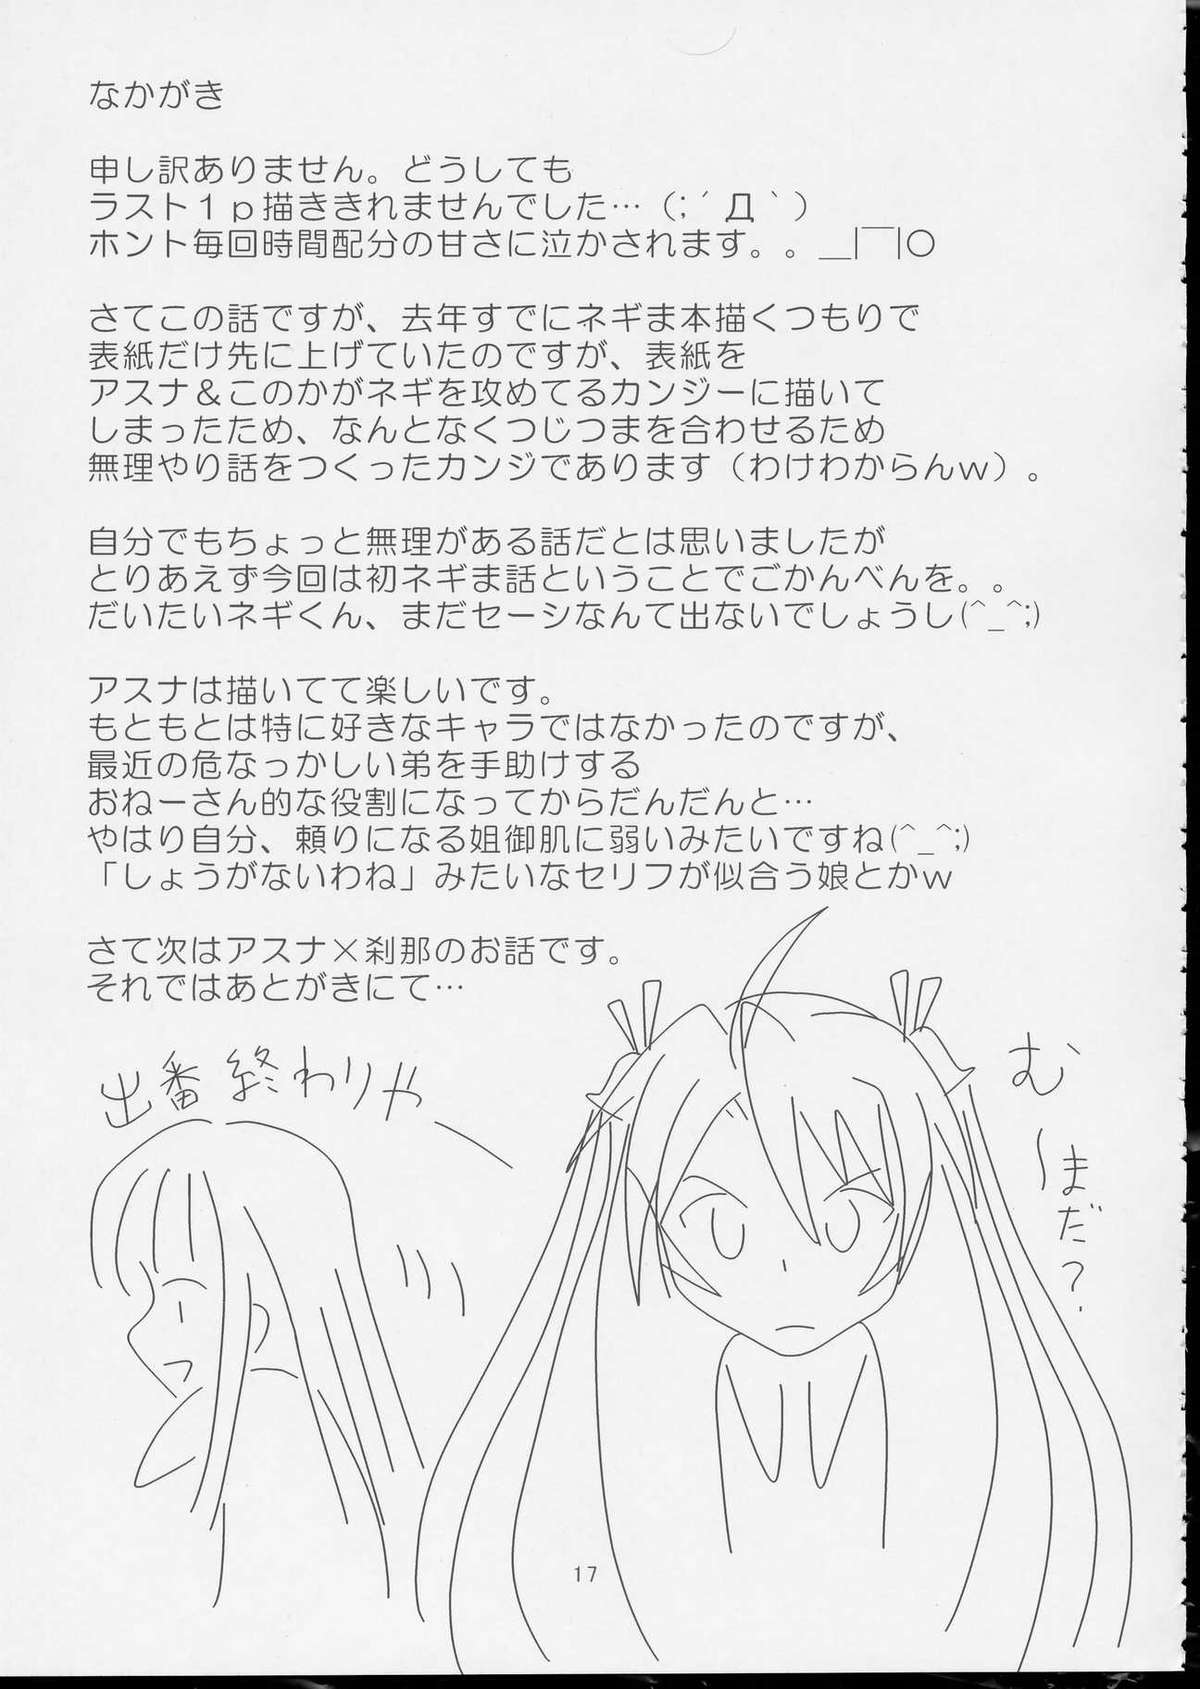 なかがき
申し訳ありません。どうしても
ラスト１ｐ描ききれませんでした…（;´Д｀）
ホント毎回時間配分の甘さに泣かされます。。＿|￣|○
さてこの話ですが、去年すでにネギま本描くつもりで
表紙だけ先に上げていたのですが、表紙を
しまったため、なんとなくつじつまを合わせるため
無理やり話をつくったカンジであります（わけわからんｗ）。
自分でもちょっと無理がある話だとは思いましたが
とりあえず今回は初ネギま話ということでごかんべんを。。
アスナは描いてて楽しいです。
もともとは特に好きなキャラではなかったのですが、
最近の危なっかしい弟を手助けする
おねーさん的な役割になってからだんだんと…
やはり自分、頼りになる姐御肌に弱いみたいですね(^_^;)
「しょうがないわね」みたいなセリフが似合う娘とかｗ
さて次はアスナ×刹那のお話です。
それではあとがきにて…
出番終わりやー
む〜まだ？
17